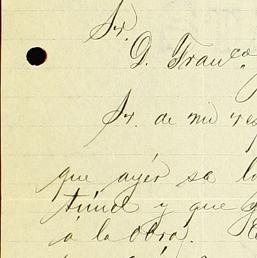 Sr.
D. Franco.
Sr. de mi res
que ayer se lo
tiina y que
a la obra.